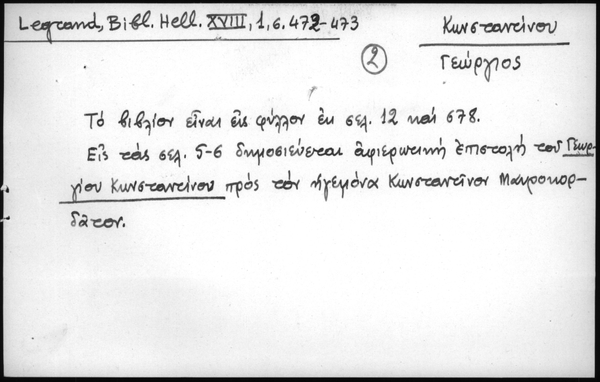 Legrand, Bibl. Hell. XVIII, 1, σ. 472-473
Κωνσταντίνου
Γεώργιος
2
Τό βιβλίον εἶναι εἰς φύλλον ἐκ σελ. 12 καί 678.
Εἰς τάς σελ. 5-6 δημοσιεύεται ἀφιερωτική ἐπιστολή τοῦ Γεωρ-
γίου Κωνσταντίνου πρός τόν ἡγεμόνα Κωνσταντῖνον Μαυροκορ-
δᾶτον.